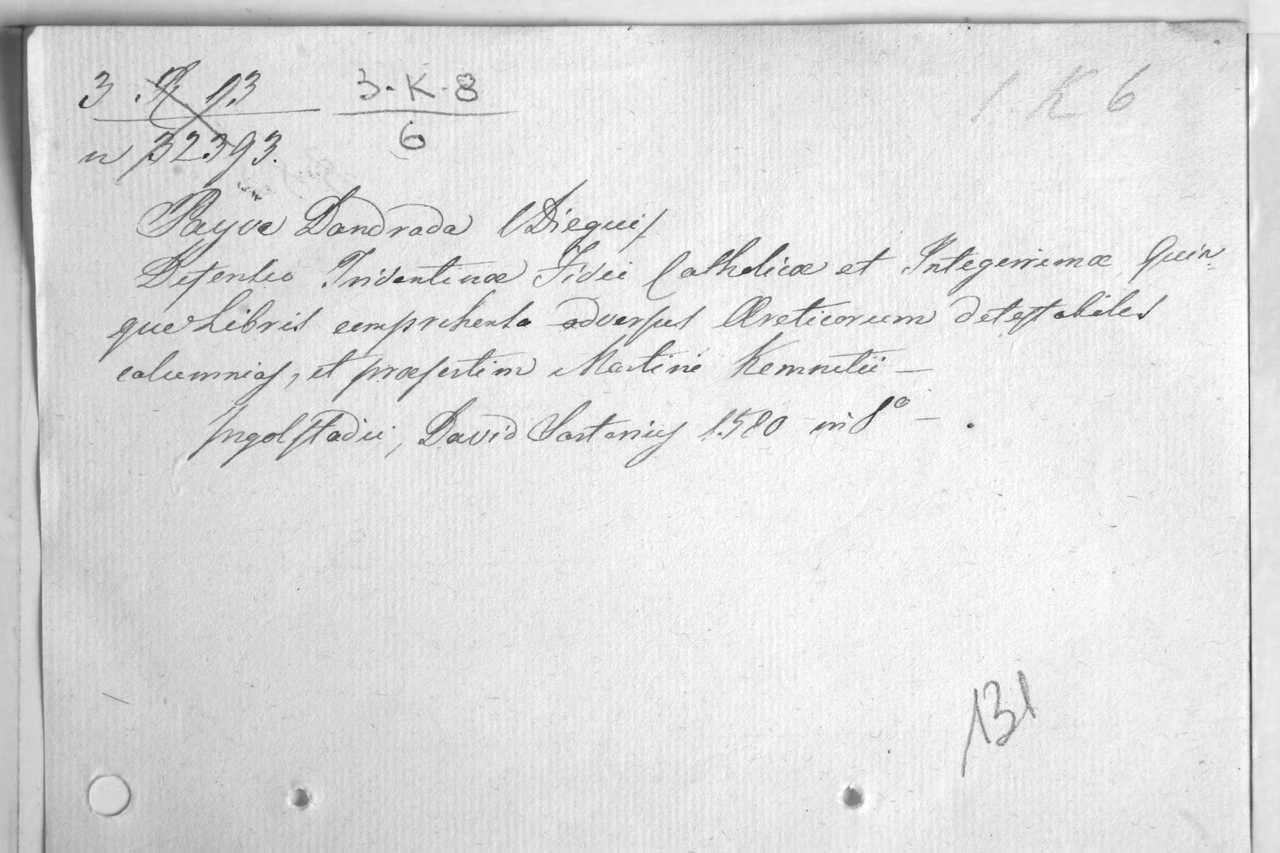 3 . K 13
n 32393.
3. K. 8
6
1. K 6
Payva Dandrada (Diegui)
Defensio Tridentinæ Fidei Catholicæ et Integerrimæ Quin-
que Libris comprehensa adversus Æreticorum detestabiles
calumnias, et præsertim Martini Kemnitii —
Ingolstadii, David Sartorius 1580 in 8º — .
131